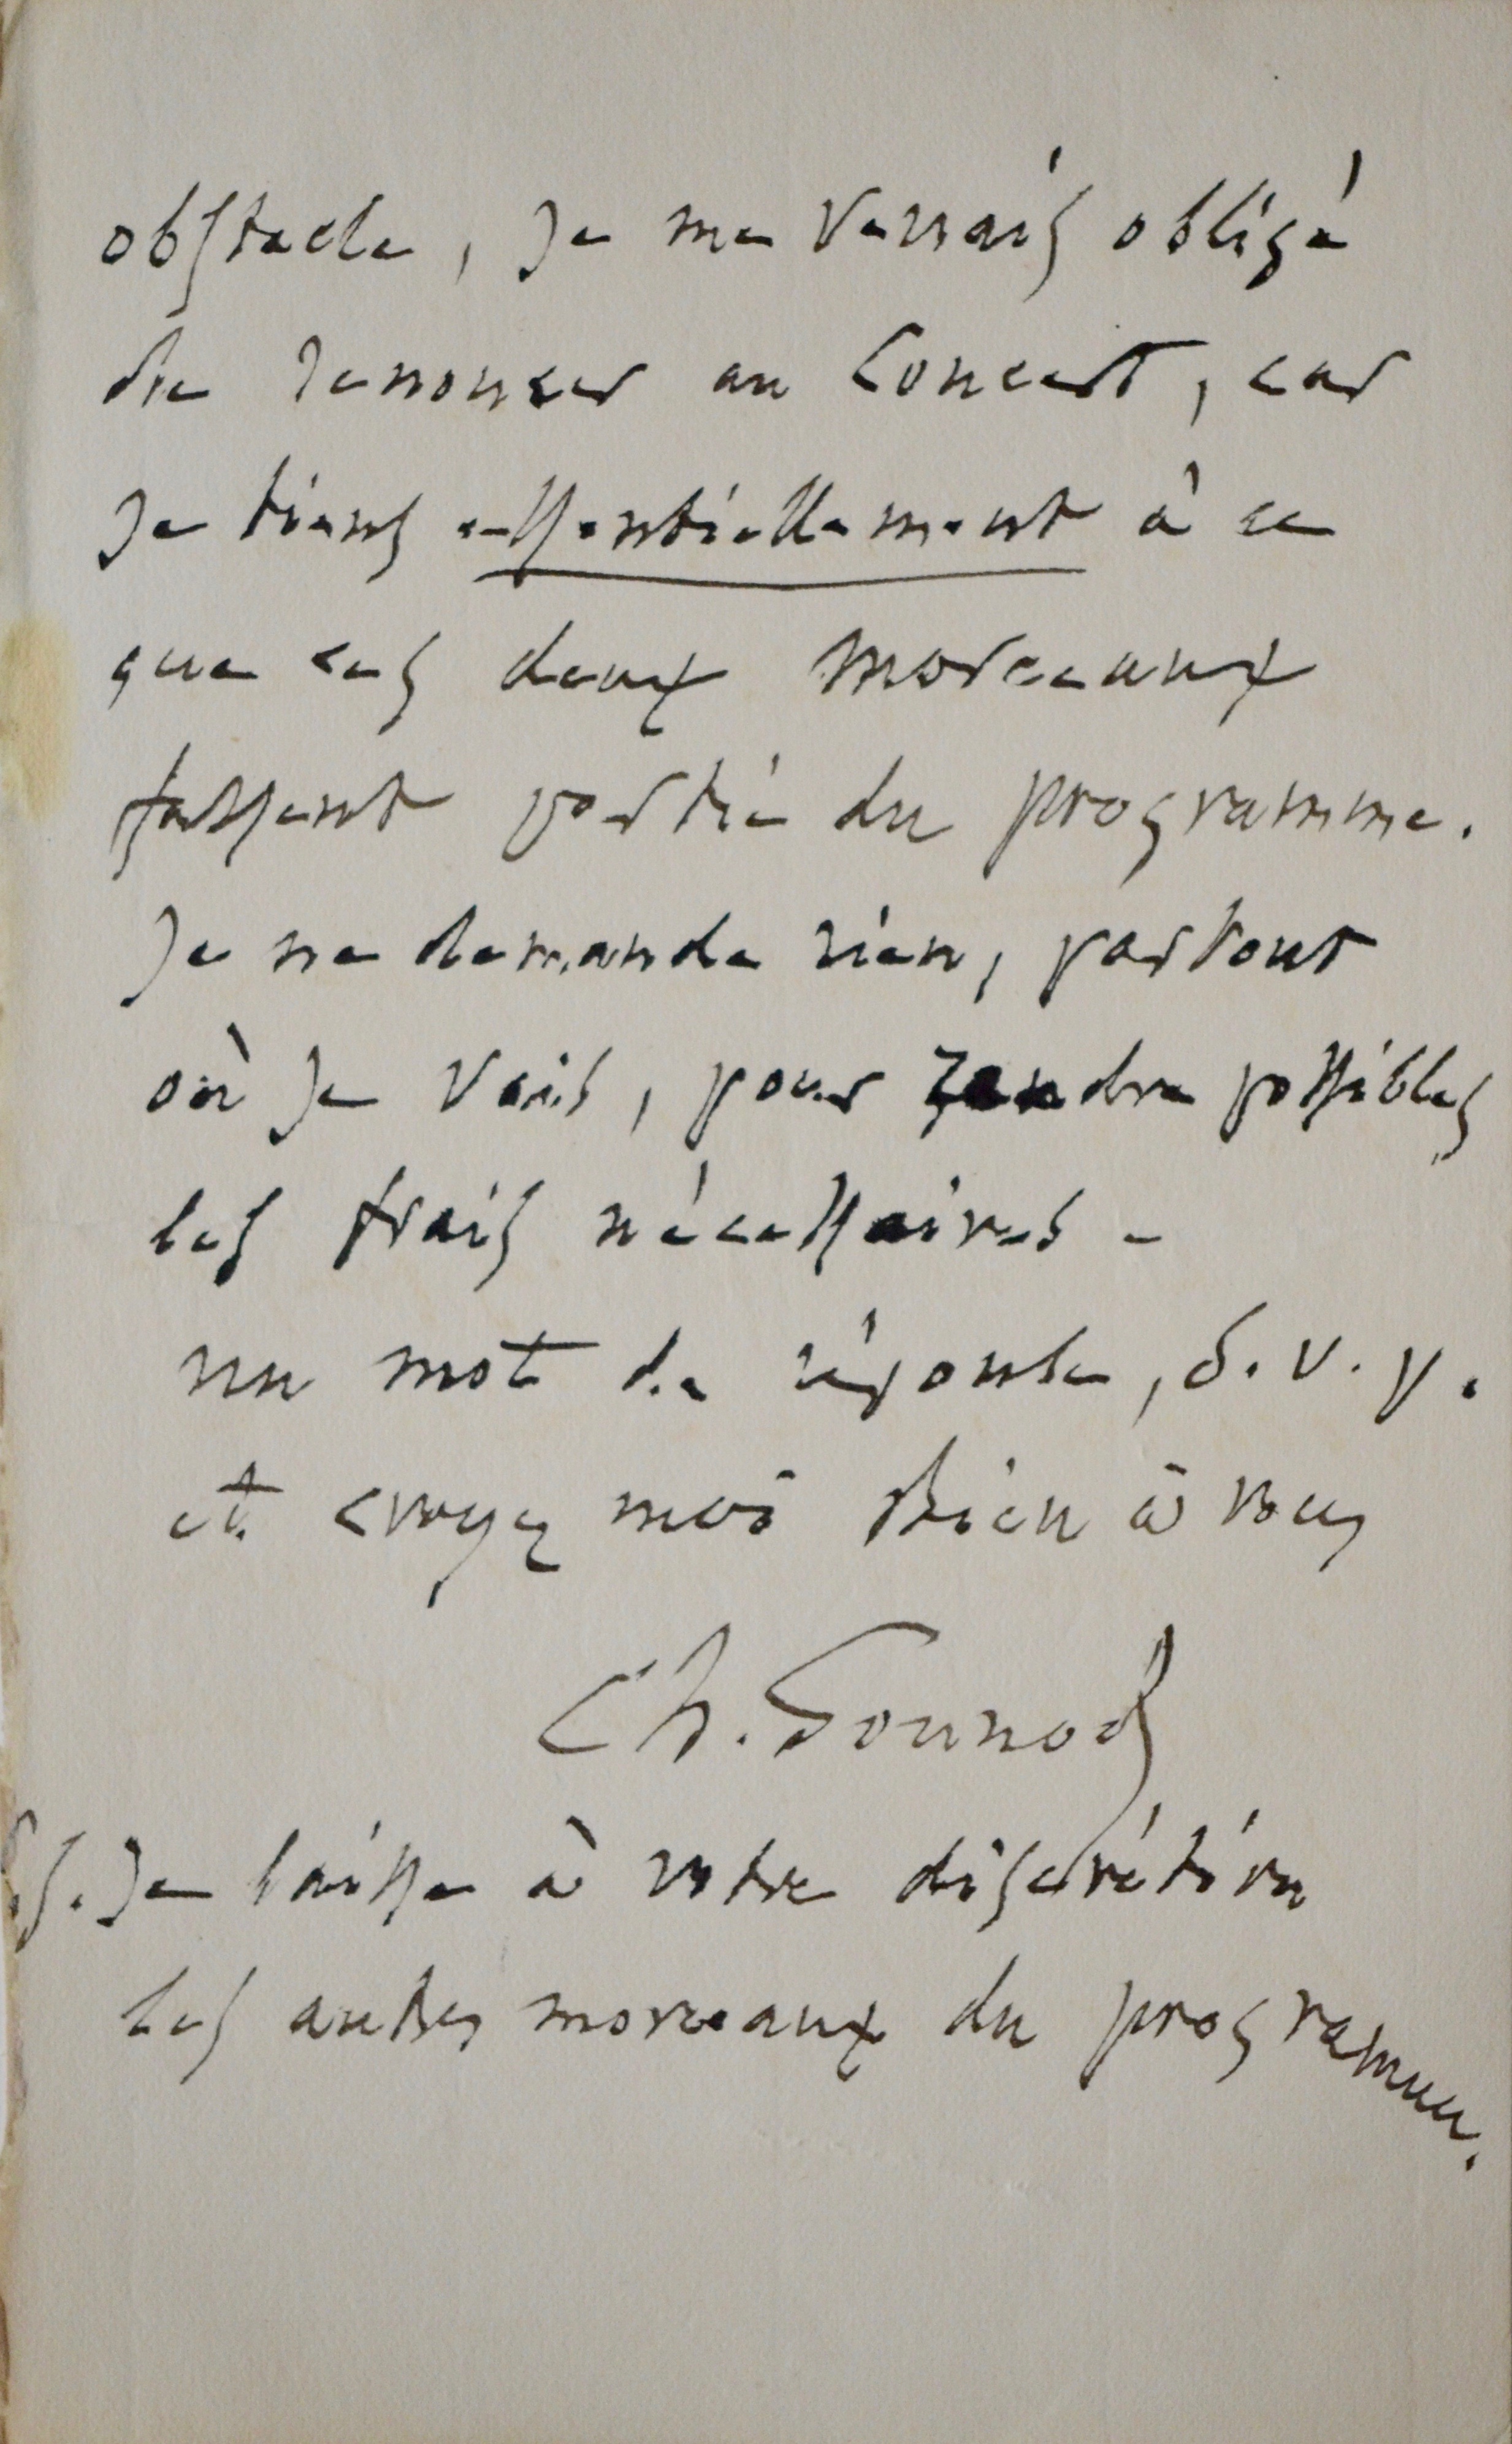 obstacle, je me verrais obligé
de renoncer au Concert, car
je tiens essentiellement à ce
que ces deux morceaux
fassent partie du programme.
Je ne demande rien, partout
où je vais, pour rendre possibles
les frais nécessaires -
un mot de réponse, s. v. p.
et croyez moi Bien à vous
Ch. Gounod
P.S. Je laisse à votre discrétion
les autres morceaux du programme.